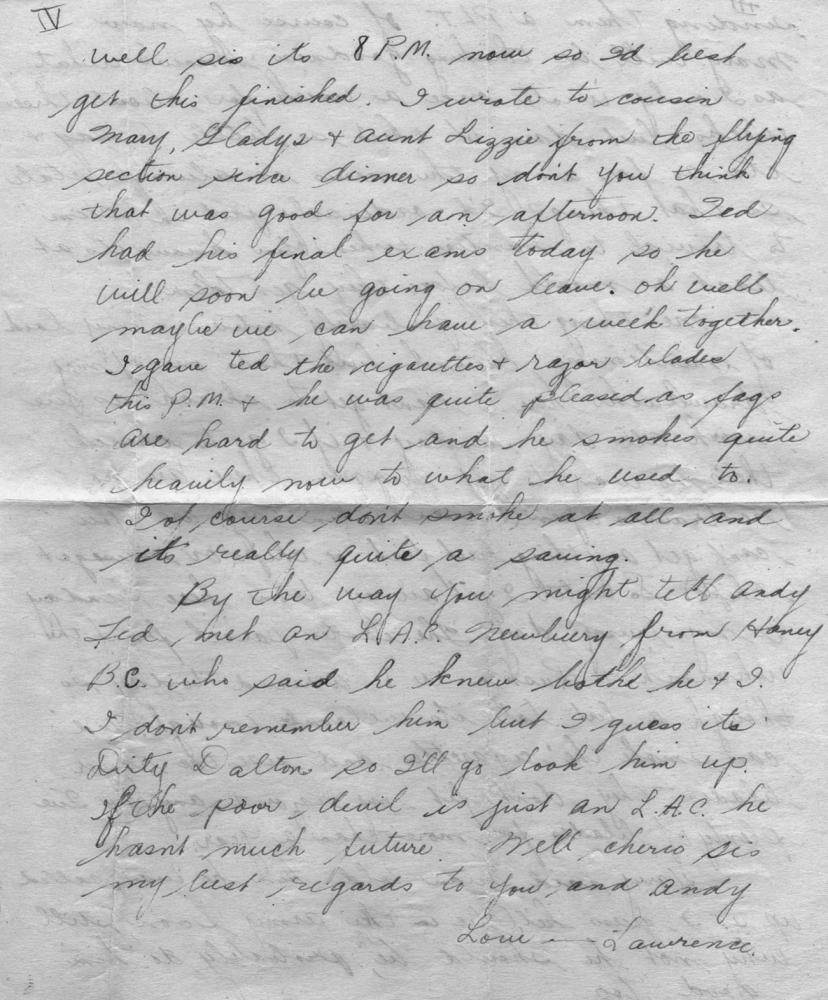 IV
well sis its 8 P.M. now so I'd best
get this finished. I wrote to cousin
Mary, Gladys & aunt Lizzie from the flying
section since dinner so don't you think
that was good for an afternoon. Ted
had his final exams today so he
will soon be going on leave. oh well
maybe we can have a week together.
I gave ted the cigarettes & razor blades
this P.M. & he was quite pleased as fags
are hard to get and he smokes quite
heavily now to what he used to.
I of course don't smoke at all and
its really quite a saving.
By the way you might tell andy
Ted met an L.A.C. Newbury from Haney
B.C. who said he knew bothe he & I.
I don't remember him but I guess its
Dirty Dalton so I'll go look him up.
If the poor devil is just an L.A.C. he
hasnt much future. Well cherio sis
my best regards to you and andy
Love — Lawrence.